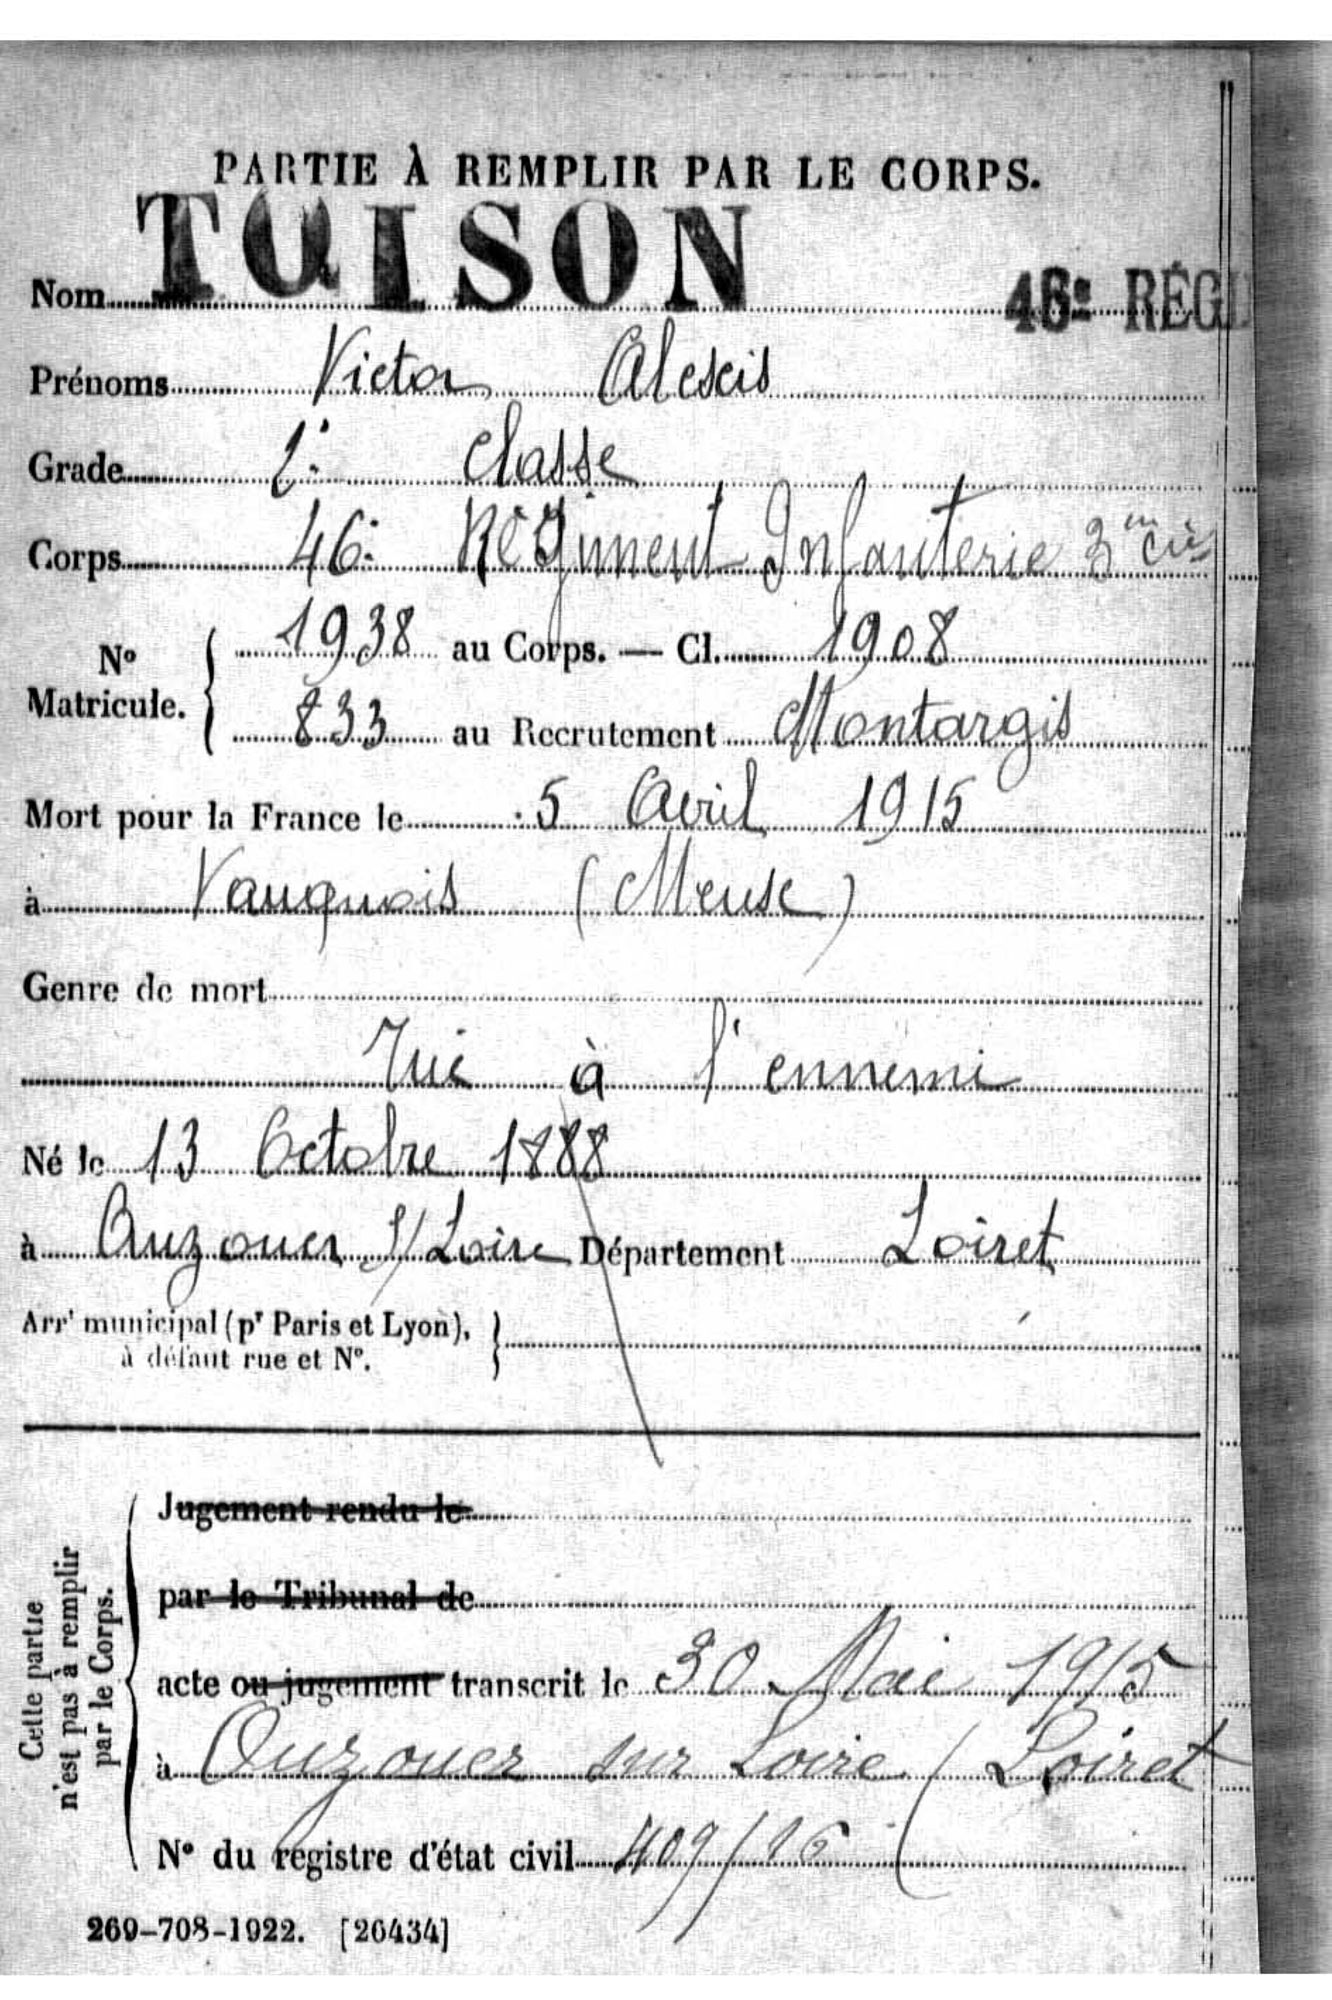 PARTIE À REMPLIR PAR LE CORPS.
Nom TOISON 46e RÉGI
Prénoms Victor Alexis
Grade 2e Classe
Corps 46e Régiment Infanterie 3me Cie
No Matricule. 1938 au Corps. — Cl. 1908
833 au Recrutement Montargis
Mort pour la France le 5 Avril 1915
à Vauquois (Meuse)
Genre de mort
Tué à l'ennemi
Né le 13 Octobre 1888
à Ouzouer s/Loire Département Loiret
Arrt municipal (pr Paris et Lyon), à défaut rue et No.
Cette partie n'est pas à remplir par le Corps.
Jugement rendu le
par le Tribunal de
acte ou jugement transcrit le 30 Mai 1915
à Ouzouer sur Loire (Loiret
No du registre d'état civil 409/16
269-708-1922. [26434]